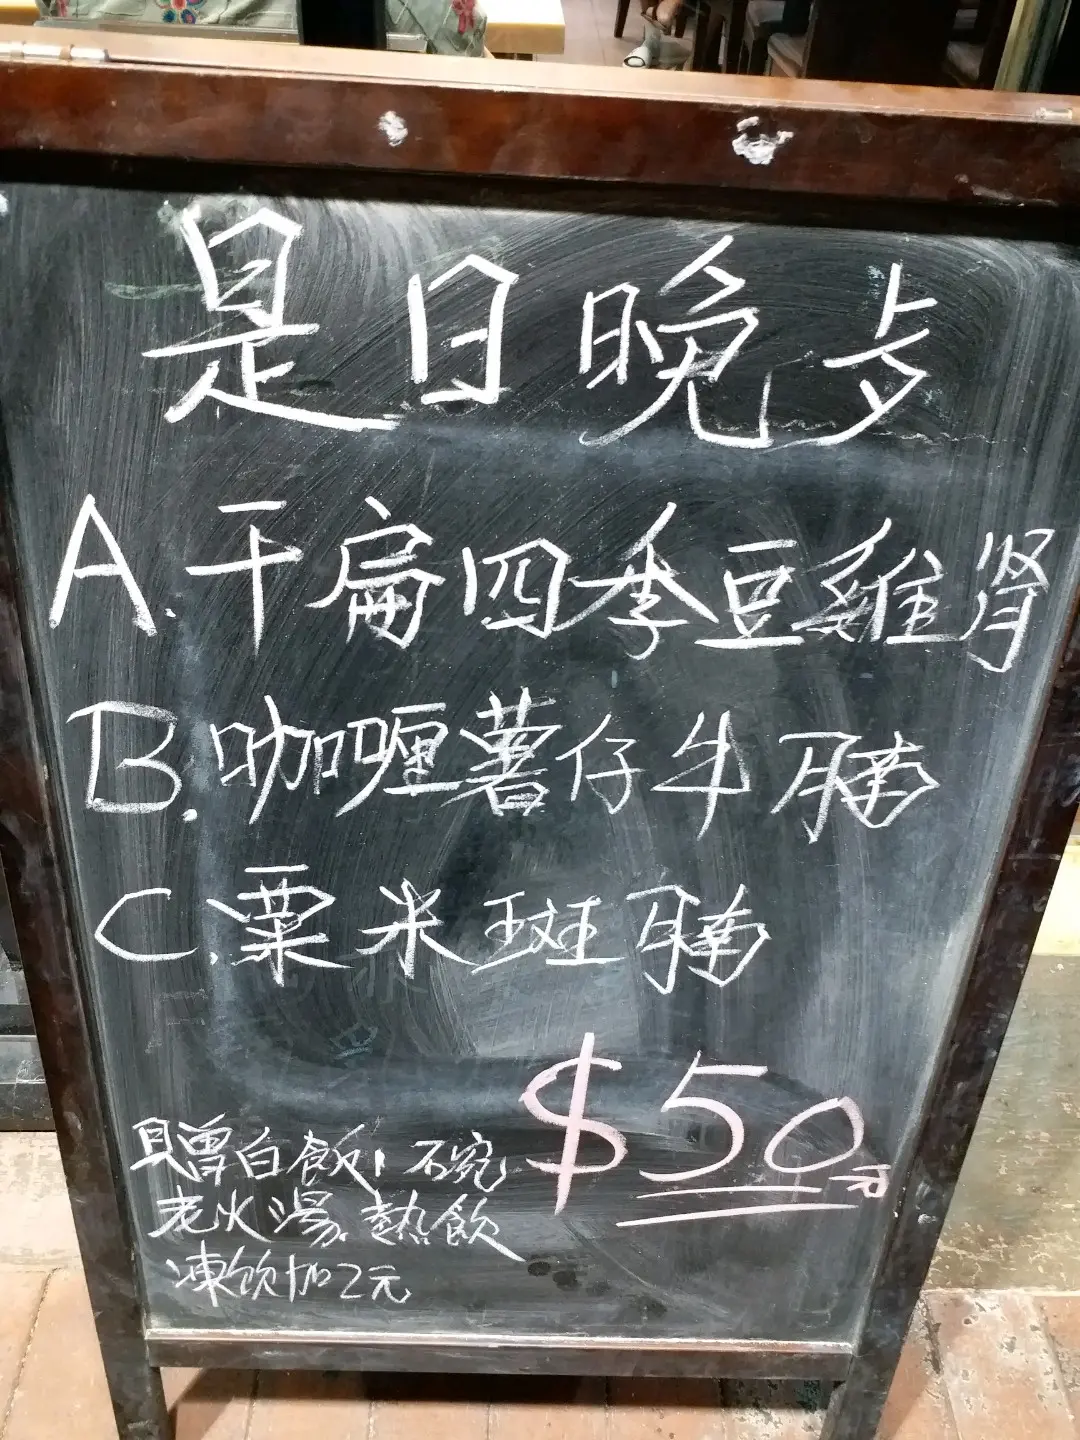 是日晚歺
A. 干扁四季豆雞腎
B. 咖喱薯仔牛腩
C. 粟米斑腩
$50元
贈白飯1碗
老火湯.熱飲
凍飲加2元